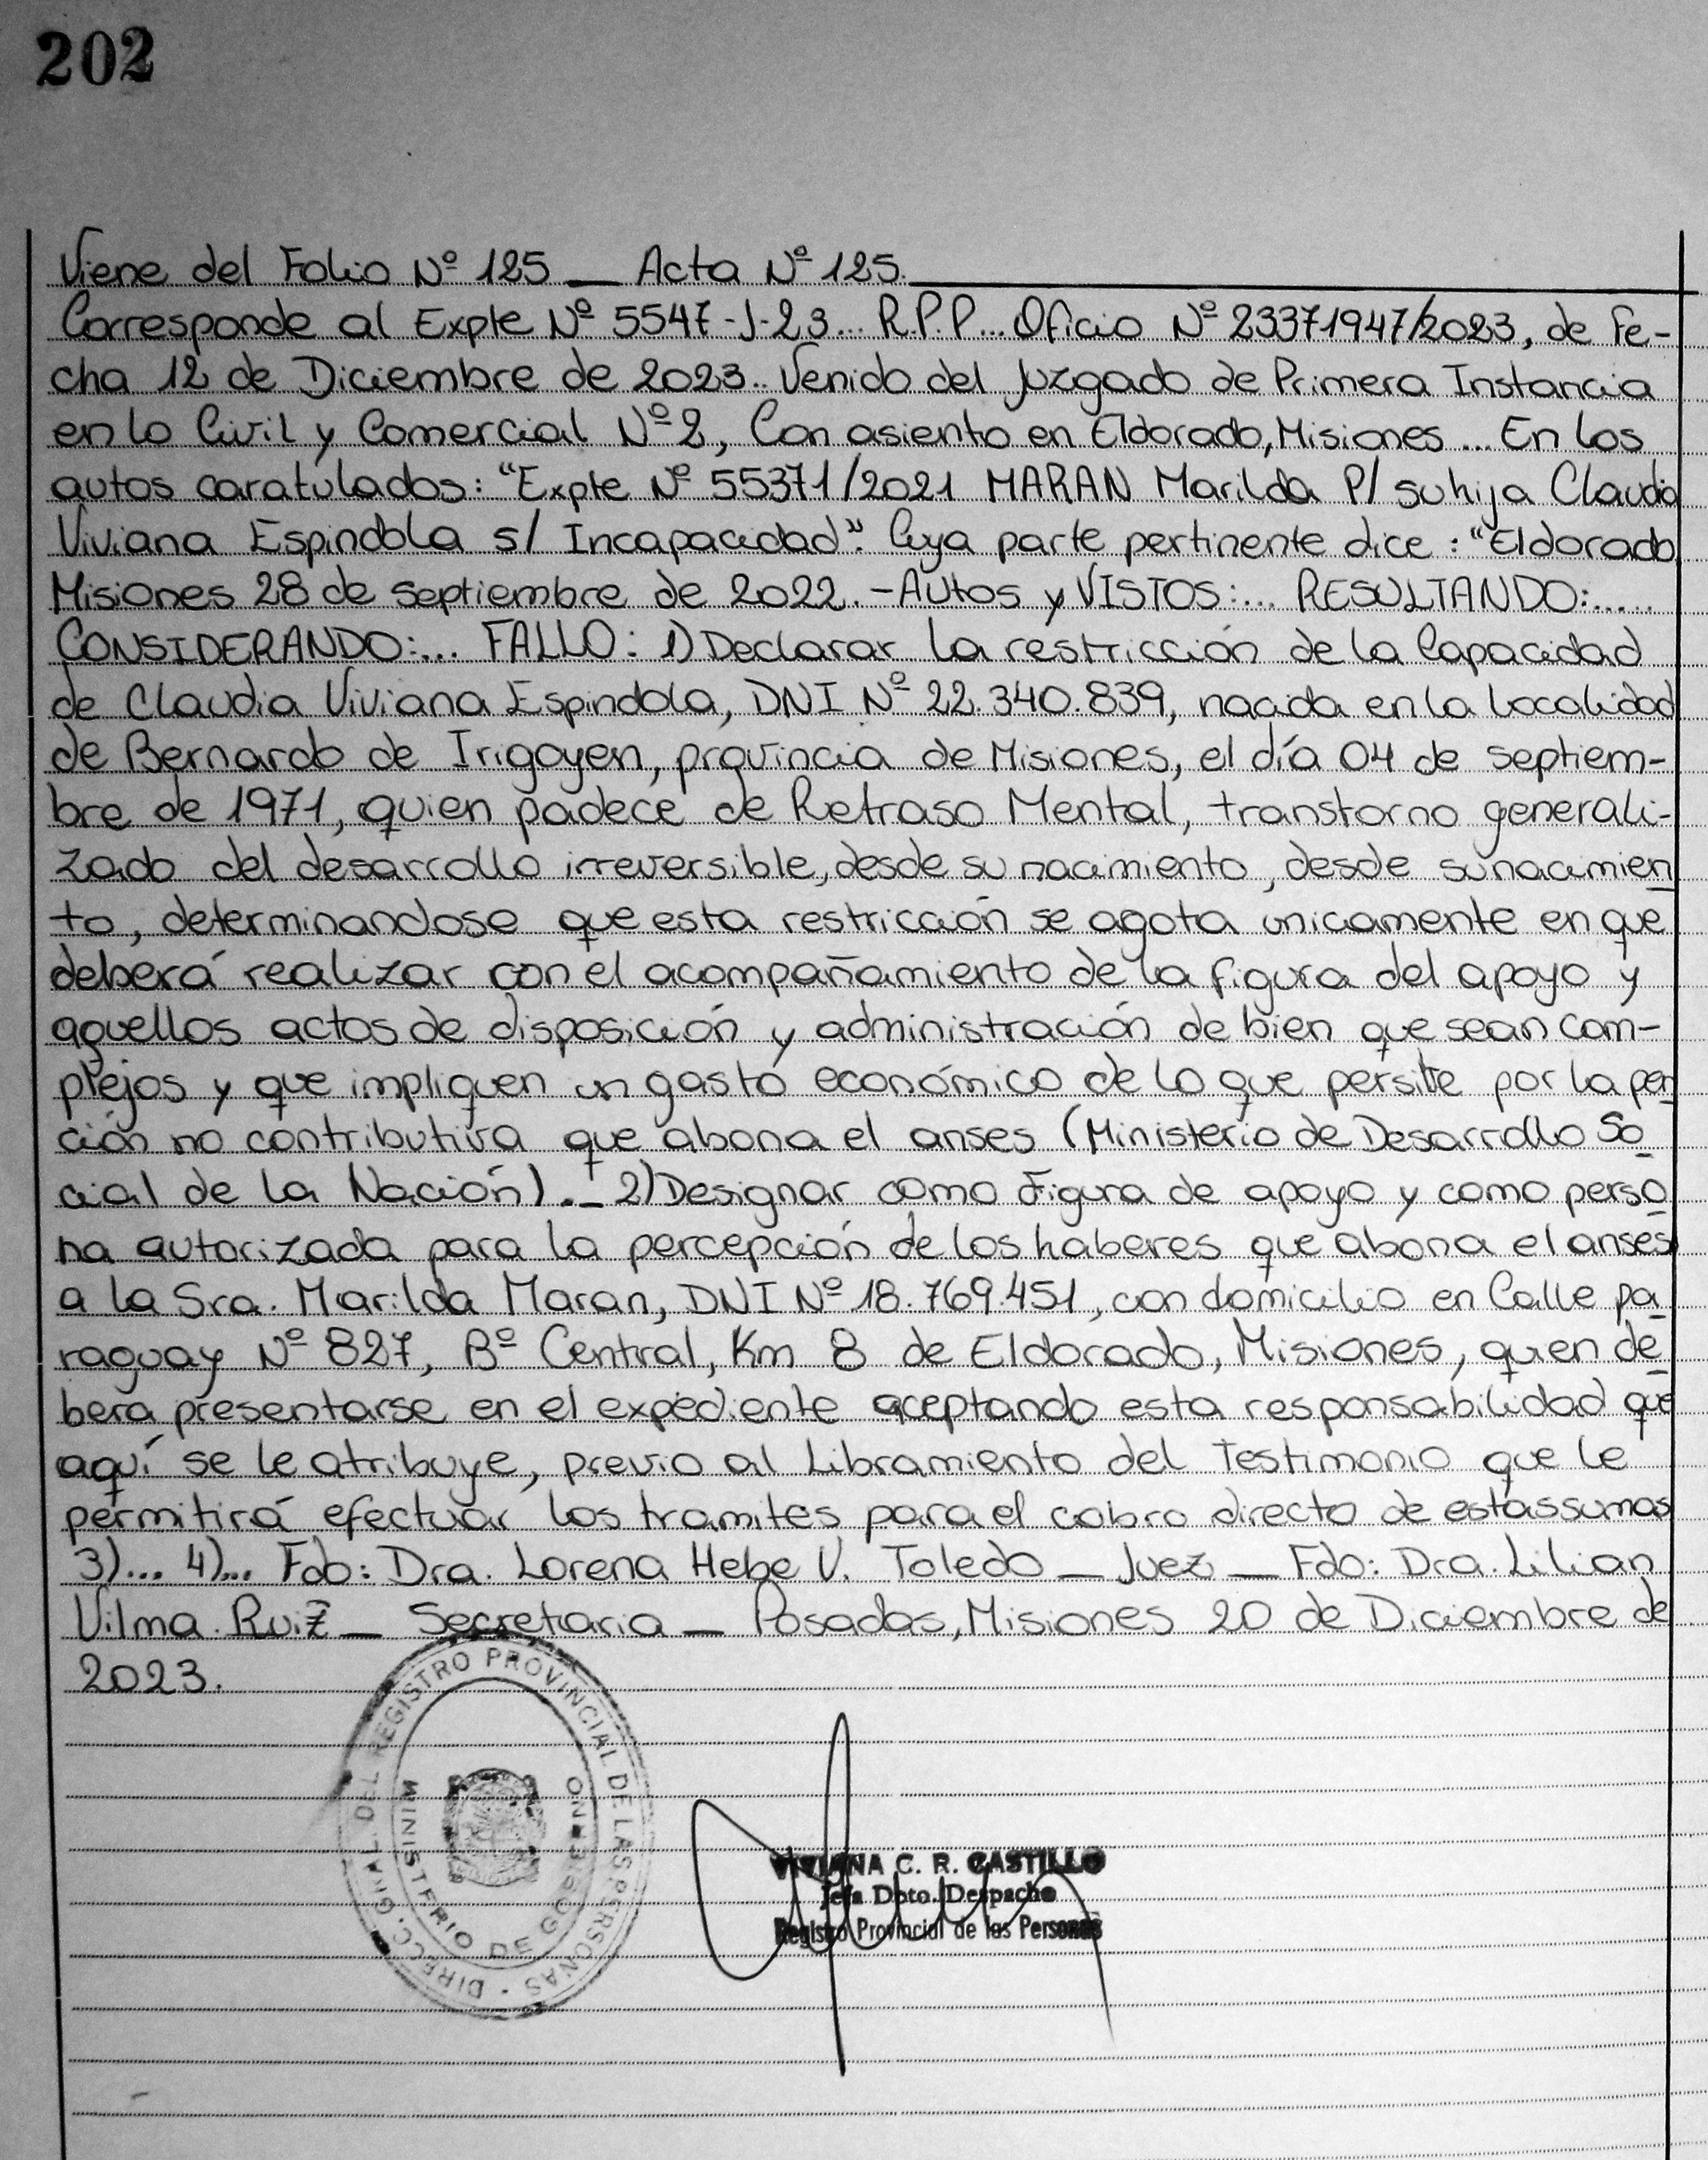 202
Viene del Folio Nº 125 _ Acta Nº 125.
Corresponde al Expte Nº 5547-J-23... R.P.P... Oficio Nº 23371947/2023, de Fe-
cha 12 de Diciembre de 2023.. Venido del Juzgado de Primera Instancia
en lo Civil y Comercial Nº 2, Con asiento en Eldorado, Misiones... En los
autos caratulados: "Expte Nº 55371/2021 MARAN Marilda P/ su hija Claudia
Viviana Espindola s/ Incapacidad". Cuya parte pertinente dice: "Eldorado
Misiones 28 de septiembre de 2022.-Autos y VISTOS:... RESULTANDO:.....
CONSIDERANDO:... FALLO: 1) Declarar la restricción de la Capacidad
de Claudia Viviana Espindola, DNI Nº 22.340.839, nacida en la Localidad
de Bernardo de Irigoyen, provincia de Misiones, el día 04 de septiem-
bre de 1971, quien padece de Retraso Mental, transtorno generali-
zado del desarrollo irreversible, desde su nacimiento, desde su nacimien
to, determinandose que esta restricción se agota unicamente en que
deberá realizar con el acompañamiento de la figura del apoyo y
aquellos actos de disposición y administración de bien que sean com-
plejos y que impliquen un gasto económico de lo que persite por la pen
ción no contributiva que abona el anses (Ministerio de Desarrollo So
cial de la Nación)._ 2) Designar como Figura de apoyo y como perso
na autorizada para la percepción de los haberes que abona el anses
a la Sra. Marilda Maran, DNI Nº 18.769.451, con domicilio en Calle pa
raguay Nº 827, Bº Central, Km 8 de Eldorado, Misiones, quien de
bera presentarse en el expediente aceptando esta responsabilidad que
aquí se le atribuye, previo al Libramiento del Testimonio que le
permitirá efectuar los tramites para el cobro directo de estas sumas
3)... 4)... Fdo: Dra. Lorena Hebe V. Toledo _ Juez _ Fdo: Dra. Lilian
Vilma Ruiz _ Secretaria _ Posadas, Misiones 20 de Diciembre de
2023.
DIRECC. GRAL. DEL REGISTRO PROVINCIAL DE LAS PERSONAS
MINISTERIO DE GOBIERNO
VIVIANA C. R. CASTILLO
Jefa Dpto. Despacho
Registro Provincial de las Personas